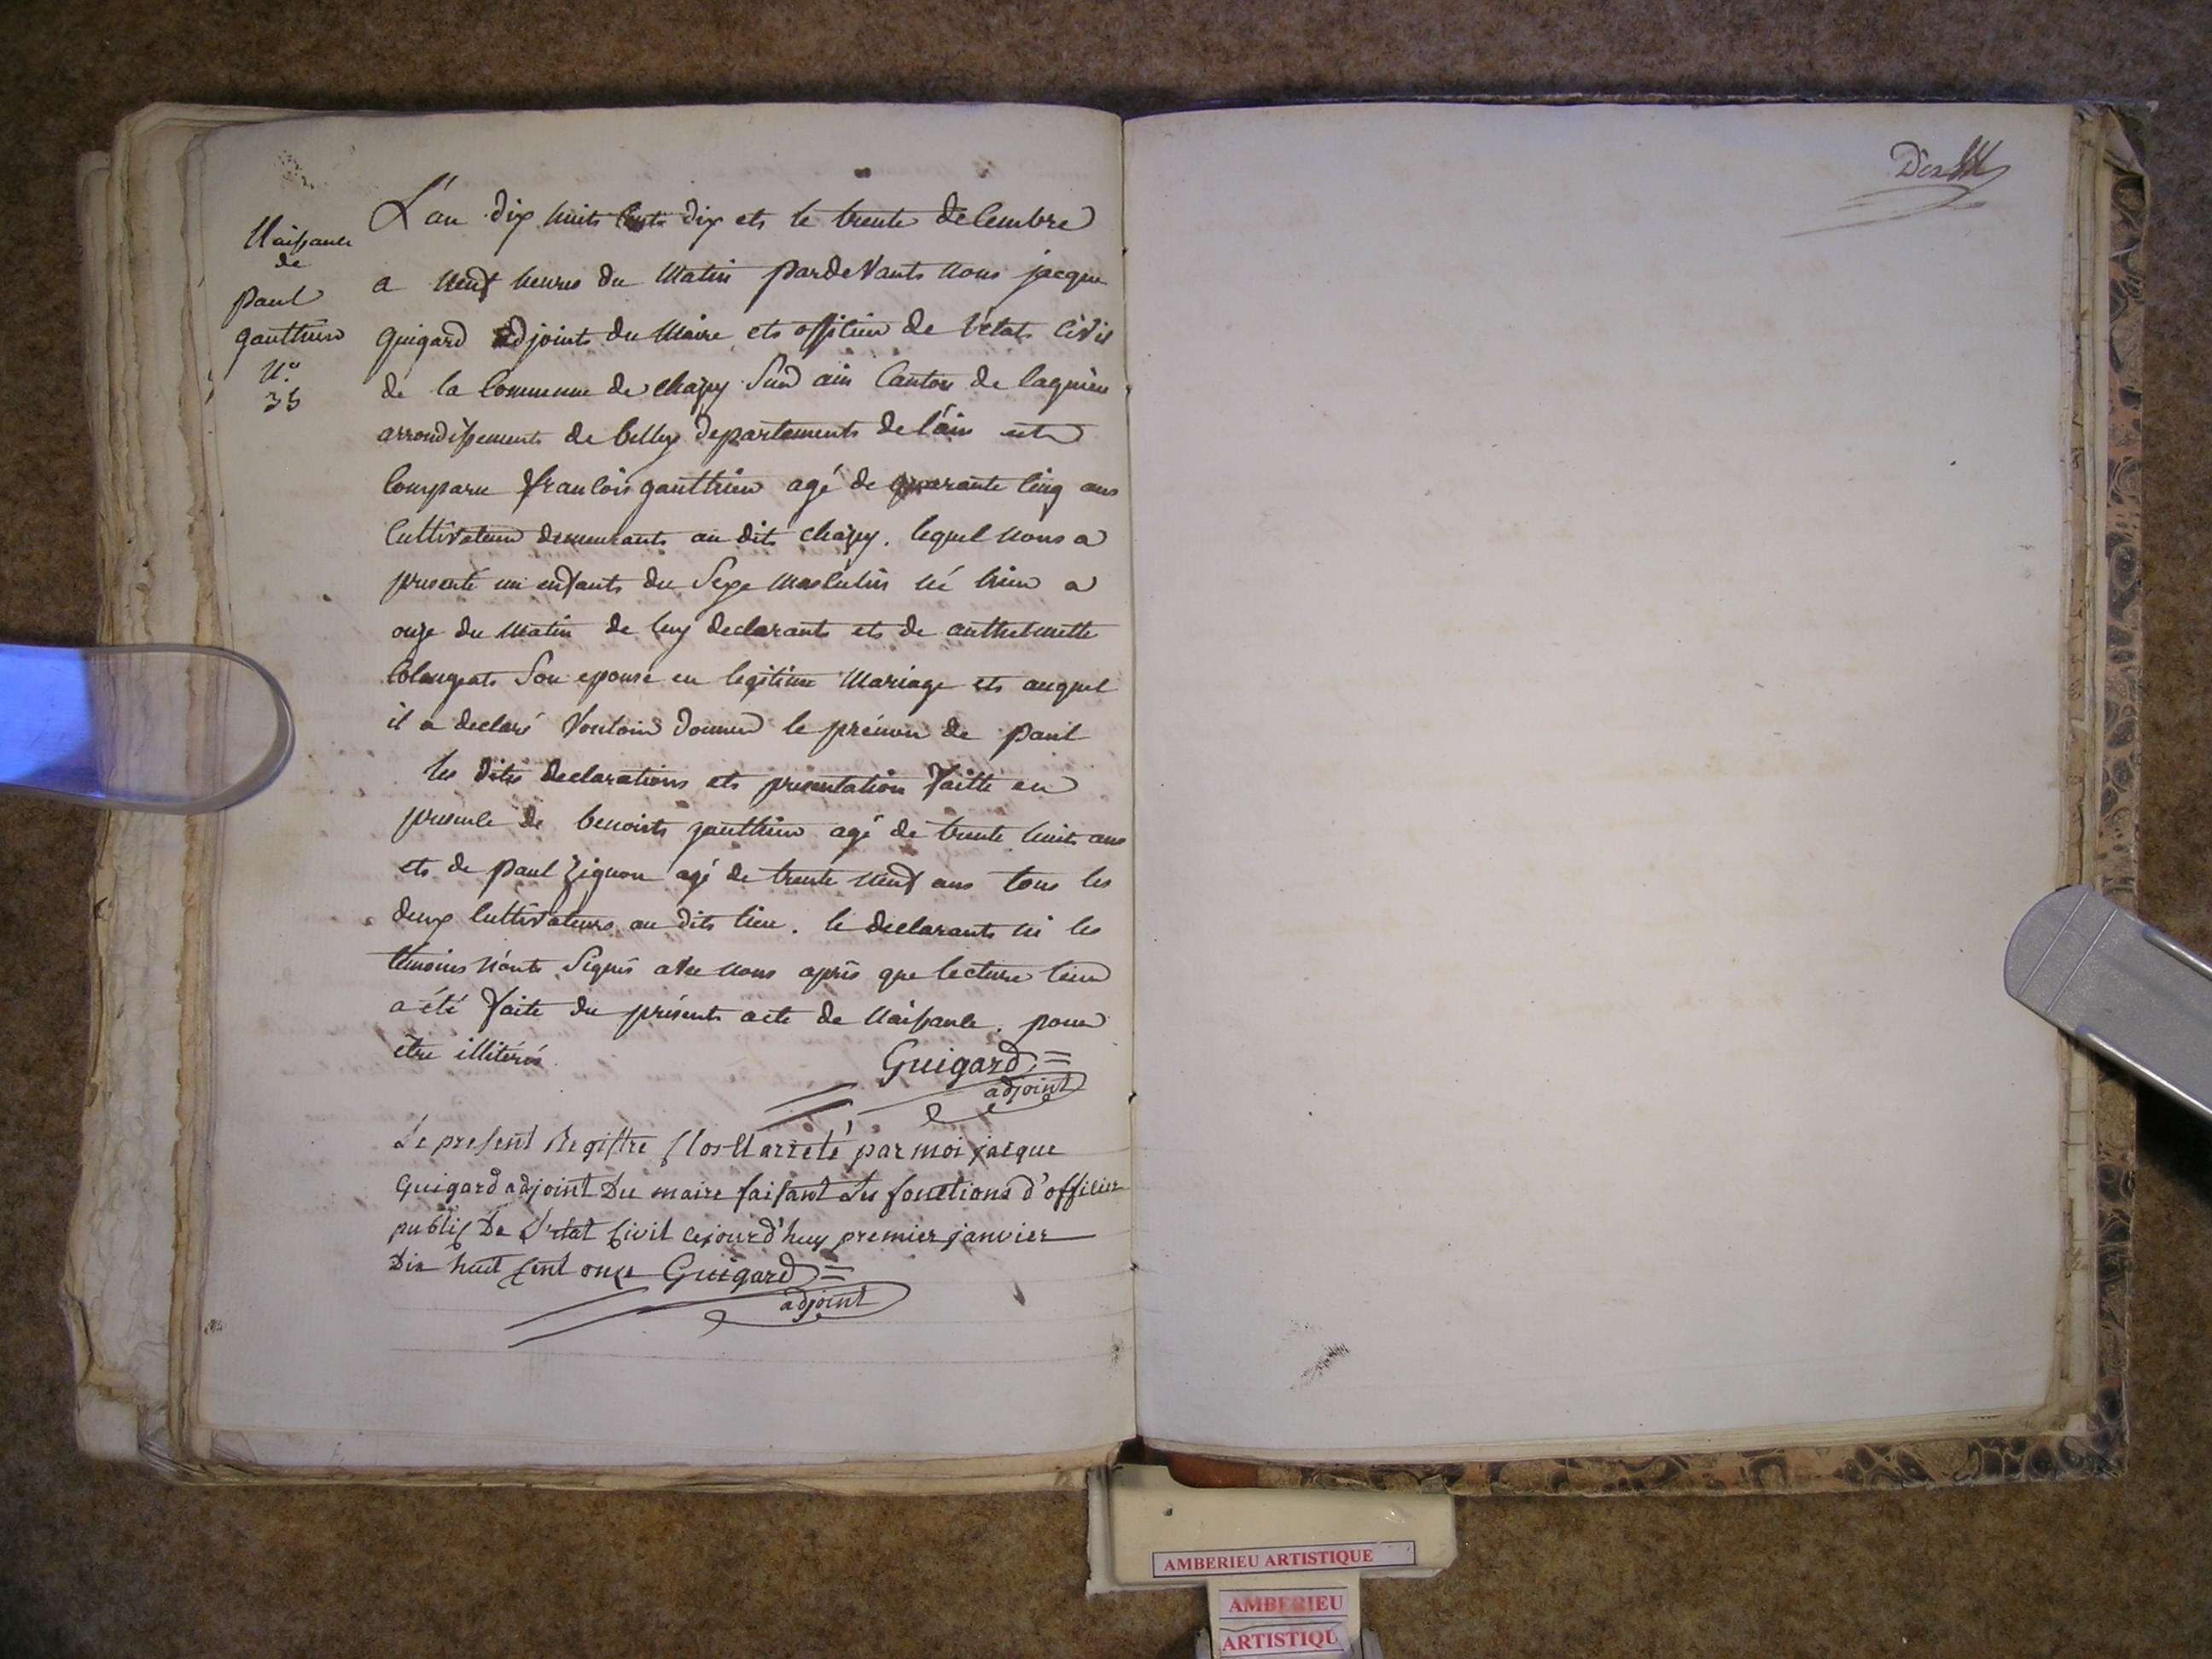 Naissance
de
paul
gauthier
N.o
35
L'an dix huits cents dix ets le trente decembre
a neuf heures du matin pardevants nous jacque
guigard adjoints du maire ets officier de l'etats civil
de la commune de chazey sur ain canton de lagnieu
arrondissements de belley departements de l'ain est
comparu francois gauthier agé de quarante cinq ans
cultivateur demeurants au dit chazey. lequel nous a
presenté un enfants du sexe masculin né hier a
onze du matin de luy declarants ets de anthelmette
colangeats son epouse en legitime mariage ets auquel
il a declaré vouloir donner le prénom de paul
les dites declarations ets presentation faitte en
presence de benoits gauthier agé de trente huits ans
ets de paul zignon agé de trente neuf ans tous les
deux cultivateurs au dits lieu. le declarants ni les
témoins n'onts signés avec nous après que lecture leur
a été faite du présents acte de naissance. pour
être illitérés.
Guigard =
adjoint
Le present Registre clos et arreté par moi jacque
Guigard adjoint Du maire faisant Les fonctions d'officier
public De L'etat civil cejourd'huy premier janvier
Dix huit cent onze Guigard =
adjoint
AMBERIEU ARTISTIQUE
AMBERIEU
ARTISTIQU